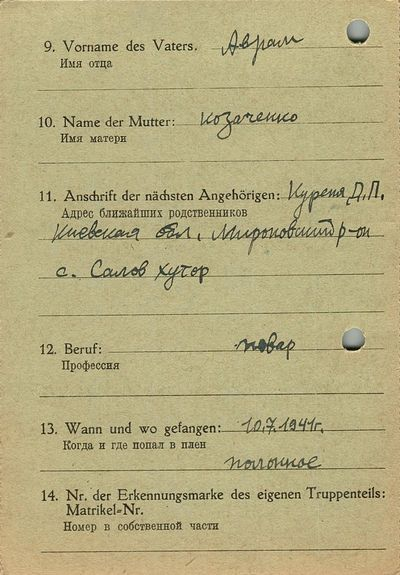 9. Vorname des Vaters. Аврам
Имя отца
10. Name der Mutter: Козаченко
Имя матери
11. Anschrift der nächsten Angehörigen: Куреня Д.П.
Адрес ближайших родственников
Киевская обл. Мироновский р-он
с. Салов хутор
12. Beruf: повар
Профессия
13. Wann und wo gefangen: 10.7.1941г.
Когда и где попал в плен
полонное
14. Nr. der Erkennungsmarke des eigenen Truppenteils:
Matrikel-Nr.
Номер в собственной части